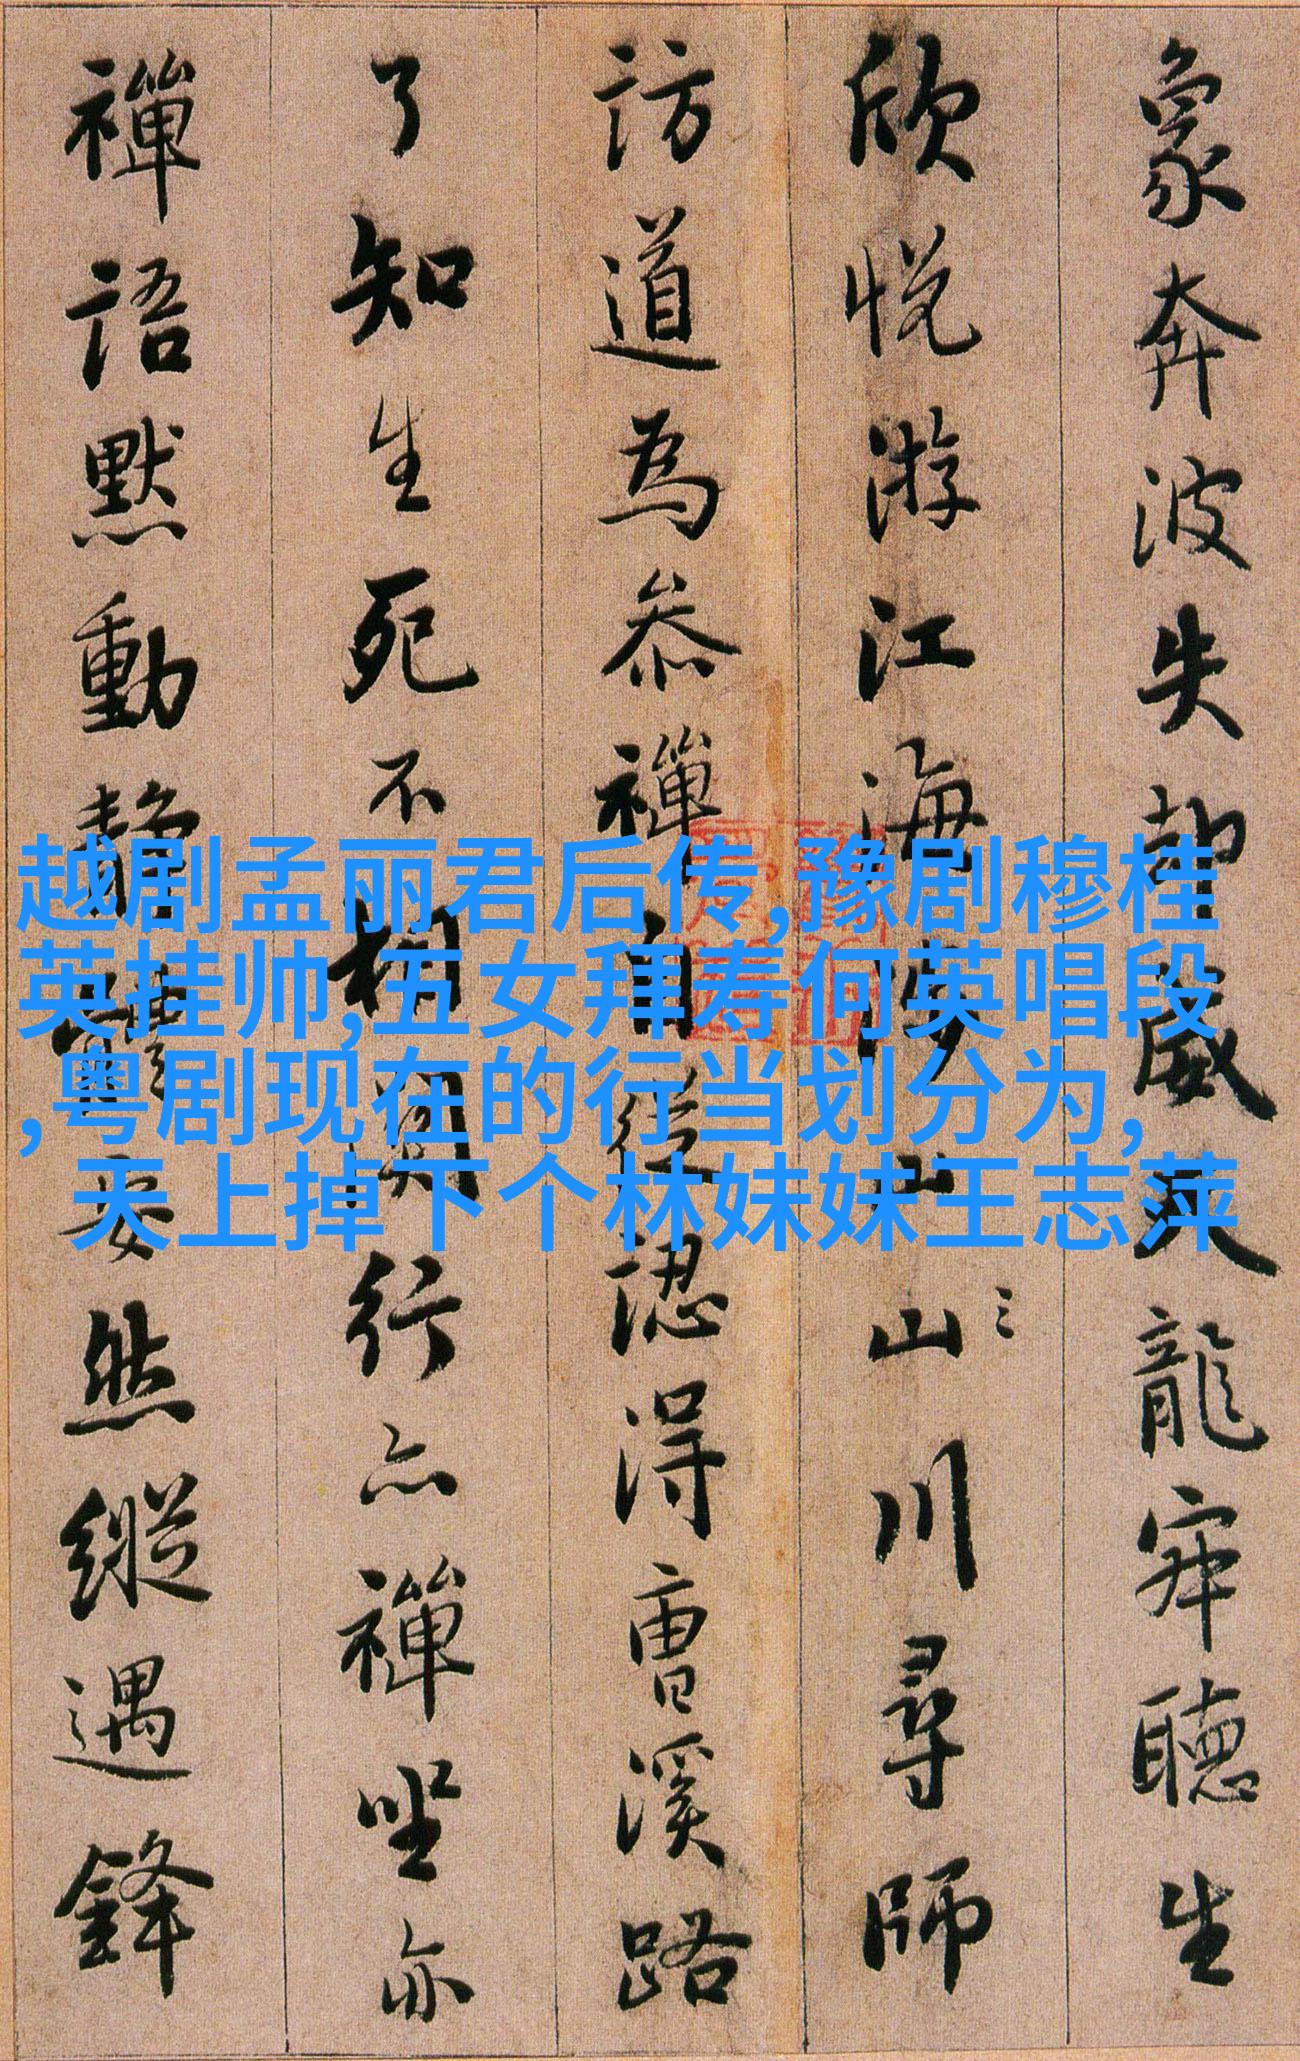 象奔波失却威天龍寂聽生
欣悅游江海涉山川尋師
訪道為參禪自從認得曹溪路
了知生死不相關行亦禪坐亦
禪語默動靜體安然縱遇鋒
越剧孟丽君后传,豫剧穆桂
英挂帅,五女拜寿何英唱段
,粤剧现在的行当划分为,
天上掉下个林妹妹王志萍